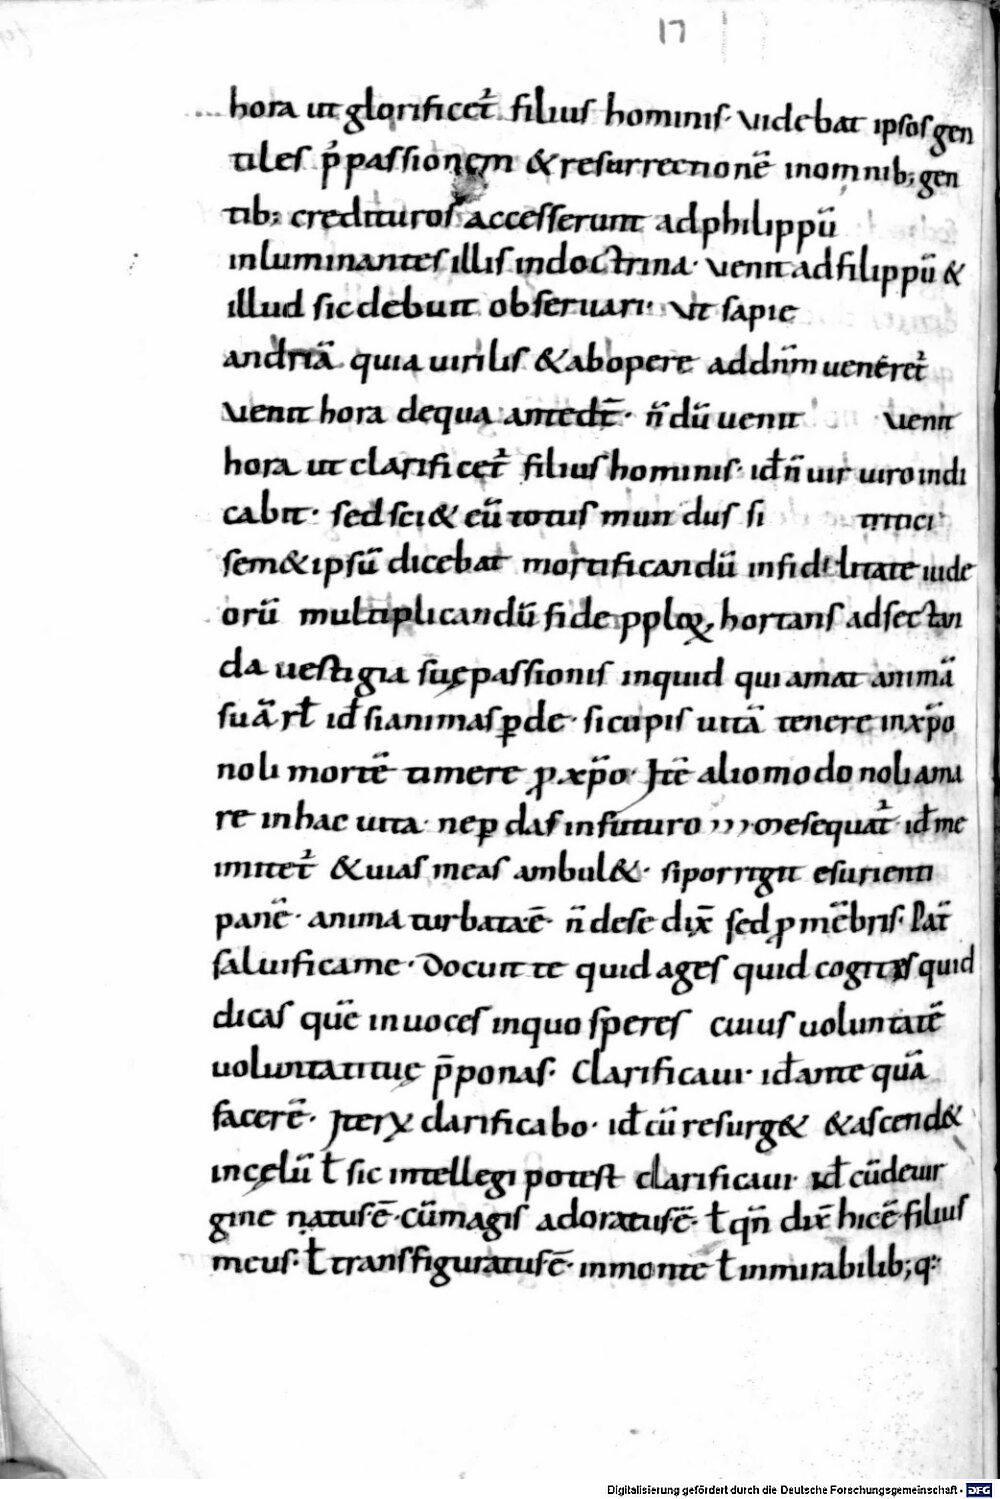 17
hora ut glorificet᷑ filius hominis· videbat ipsos gen
tiles p᷑ passionem & resurrectionē in omnib; gen
tib; credituros accesserunt ad philippū
inluminantes illis in doctrina· venit ad filippū &
illud sic debuit observari· Ut sapie
andriā quia uirilis & ab opere ad dn̄m uenēret᷑
Venit hora de qua antedt̄· n̄ dū uenit venit
hora ut clarificet᷑ filius hominis· id̄ n̄ uir uiro indi
cabit· sed sci & eū totus mundus si tritici
sem & ipsū dicebat mortificandū infidelitate iude
orū multiplicandū fide pploꝝ, hortans ad sectan
da uestigia suę passionis inquid qui amat animā
suā rł id̄ si animas ꝑde· si cupis uitā tenere in xp̄o
noli mortē timere ꝓ xp̄o· Itē alio modo noli ama
re in hac uita· ne ꝑdas in futuro ,,, me sequat᷑ id̄ me
imitet᷑ & uias meas ambul&· si porrigit esurienti
panē· anima turbata ē n̄ de se dix̄ sed ꝓ mēbris· Pat̄
saluifica me· Docuit te quid ages quid cogites quid
dicas quē inuoces in quo speres cuius uoluntatē
uoluntati tuę p̄ponas· Clarificaui· id̄ ante quā
facerē· Iteꝝ clarificabo· id̄ cū resurg& & ascend&
in cęlū ł sic intellegi potest clarificaui· id̄ cū de uir
gine natus ē· cū magis adoratus ē· ł qn̄ dix̄ hic ē filius
meus· ł transfiguratus ē· in monte ł in mirabilib; q:
Digitalisierung gefördert durch die Deutsche Forschungsgemeinschaft - DFG